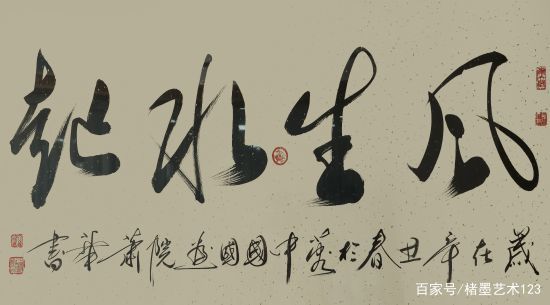 風生水起
歲在辛丑春於中國國畫院蕭華書
百家号/楮墨艺术123